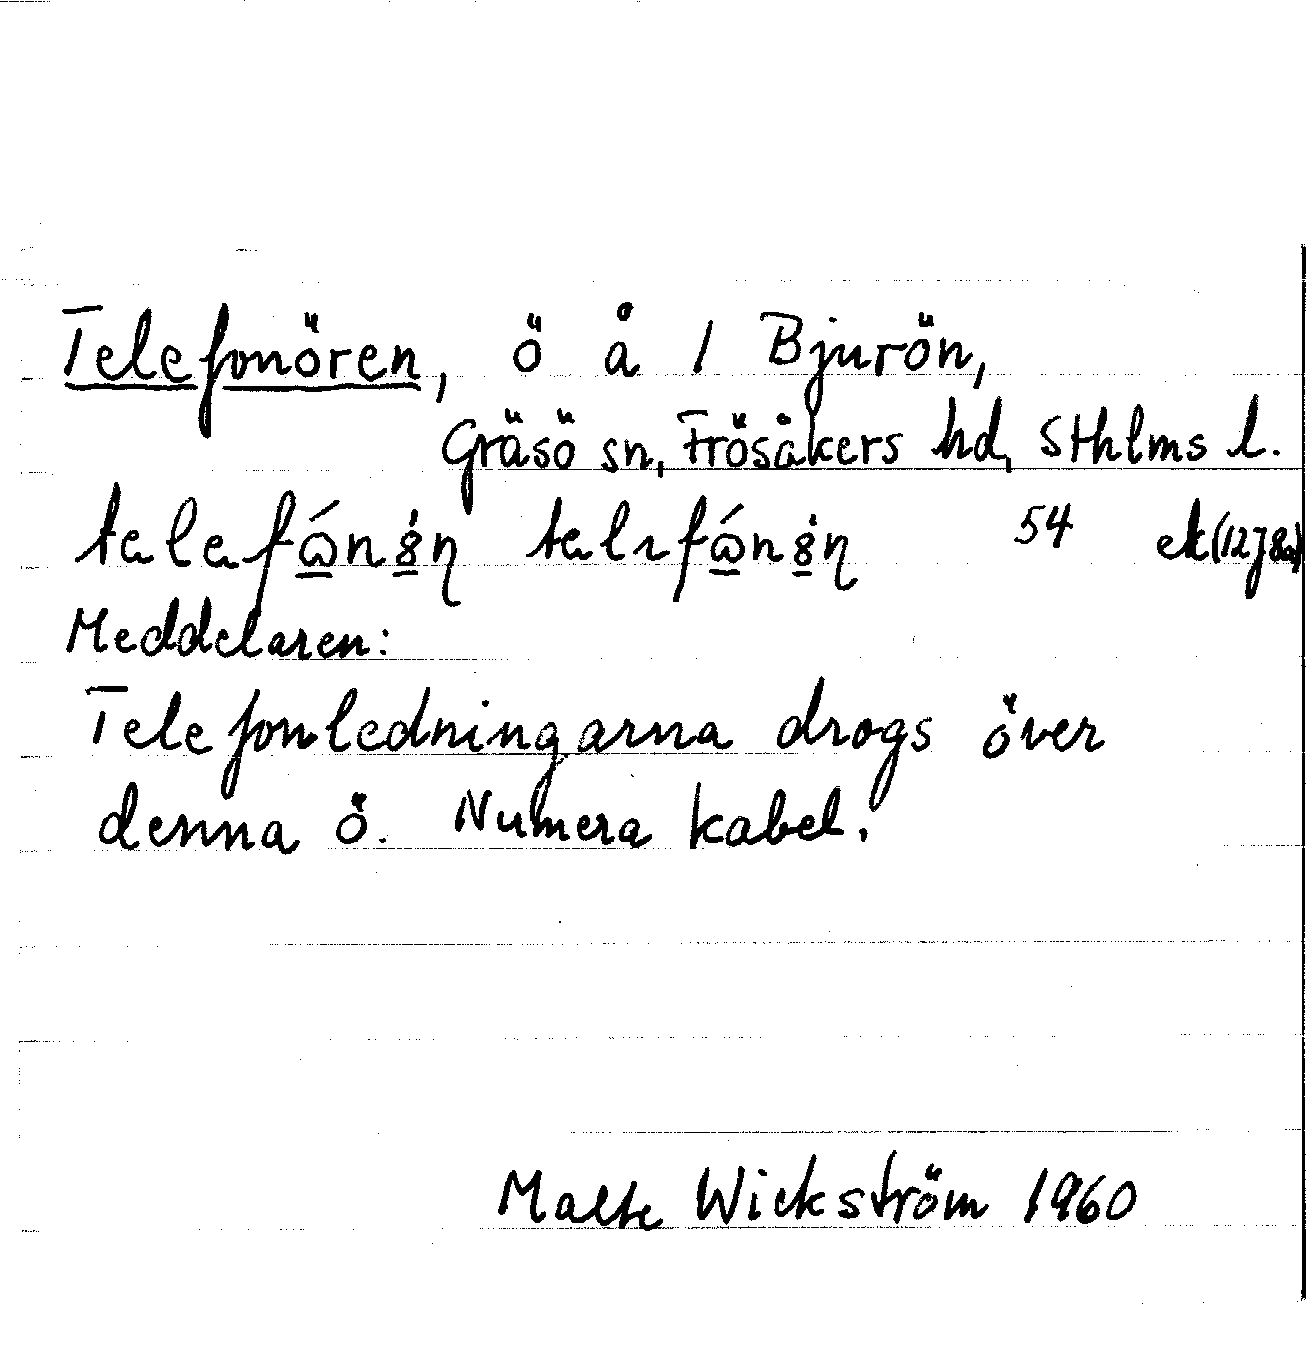 Telefonören, ö å 1 Bjurön,
Gräsö sn, Frösåkers hd, Sthlms l.
54 ek (12J8a)
Meddelaren:
Telefonledningarna drogs över
denna ö. Numera kabel.
Malte Wickström 1960